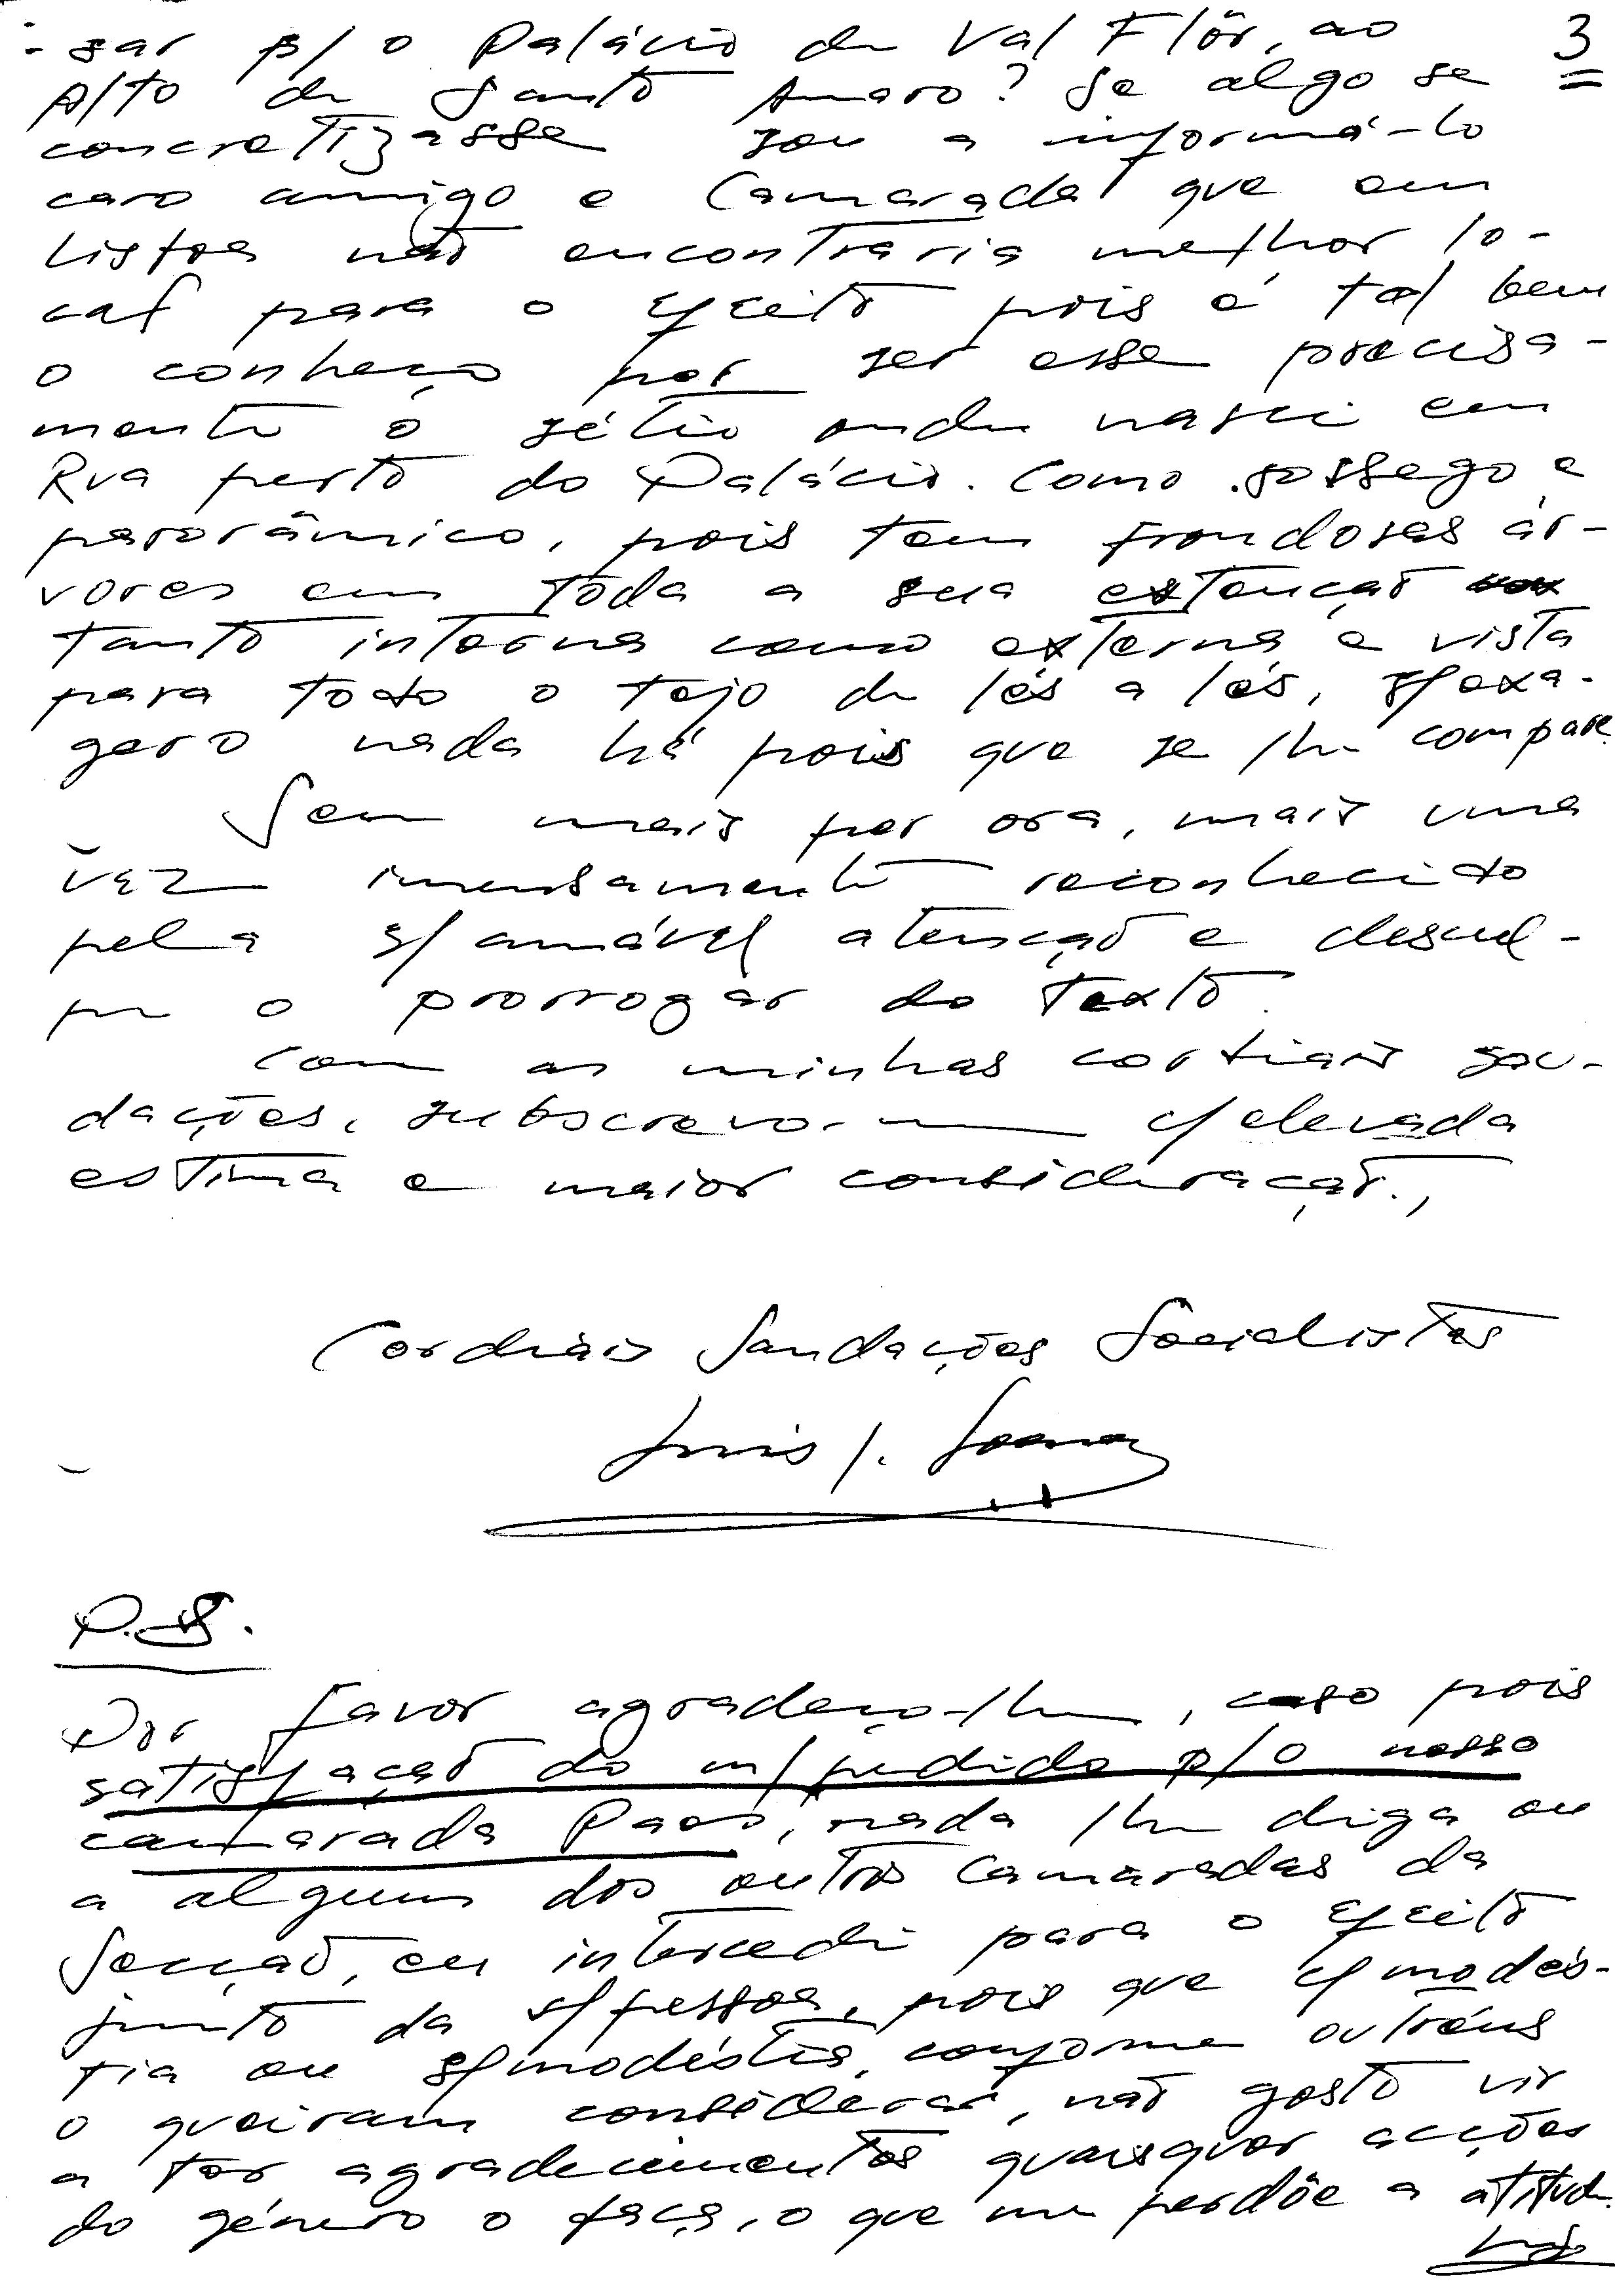 -sar p/ o Palácio de Val Flôr, ao 3
Alto de Santo Amaro? Se algo se
concretizasse sou a informá-lo
caro amigo e Camarada que em
Lisboa não encontraria melhor lo-
cal para o efeito pois é tal bem
o conheço por ser esse precisa-
mente o sétio onde nasci em
Rua perto do Palácio. Como sossego e
panorâmico, pois tem frondosas ár-
vores em toda a sua extenção
tanto interna como externa e vista
para todo o Tejo de lés a lés, s/ exa-
gero nada há pois que se lhe compare.
Sem mais por ora, mais uma
vez imensamente reconhecido
pela s/ amável atenção e descul-
pe o prorrogar do texto.
Com as minhas cordiais sau-
dações, subscrevo-me c/ elevada
estima e maior consideração.,
Cordiais Saudações Socialistas
Luis J.
P.S.
Por favor agradeço-lhe, caso pois
satisfação do m/ pedido p/ o nosso
camarada Paos, nada lhe diga ou
a algum dos outros Camaradas da
Secção, eu intercedi para o efeito
junto da s/ pessoa, pois que c/ modés-
tia ou s/ modéstia, conforme outréns
o queiram considerar, não gosto vir
a ter agradecimentos quaisquer acções
do género o faça, o que me perdôe a atitude.